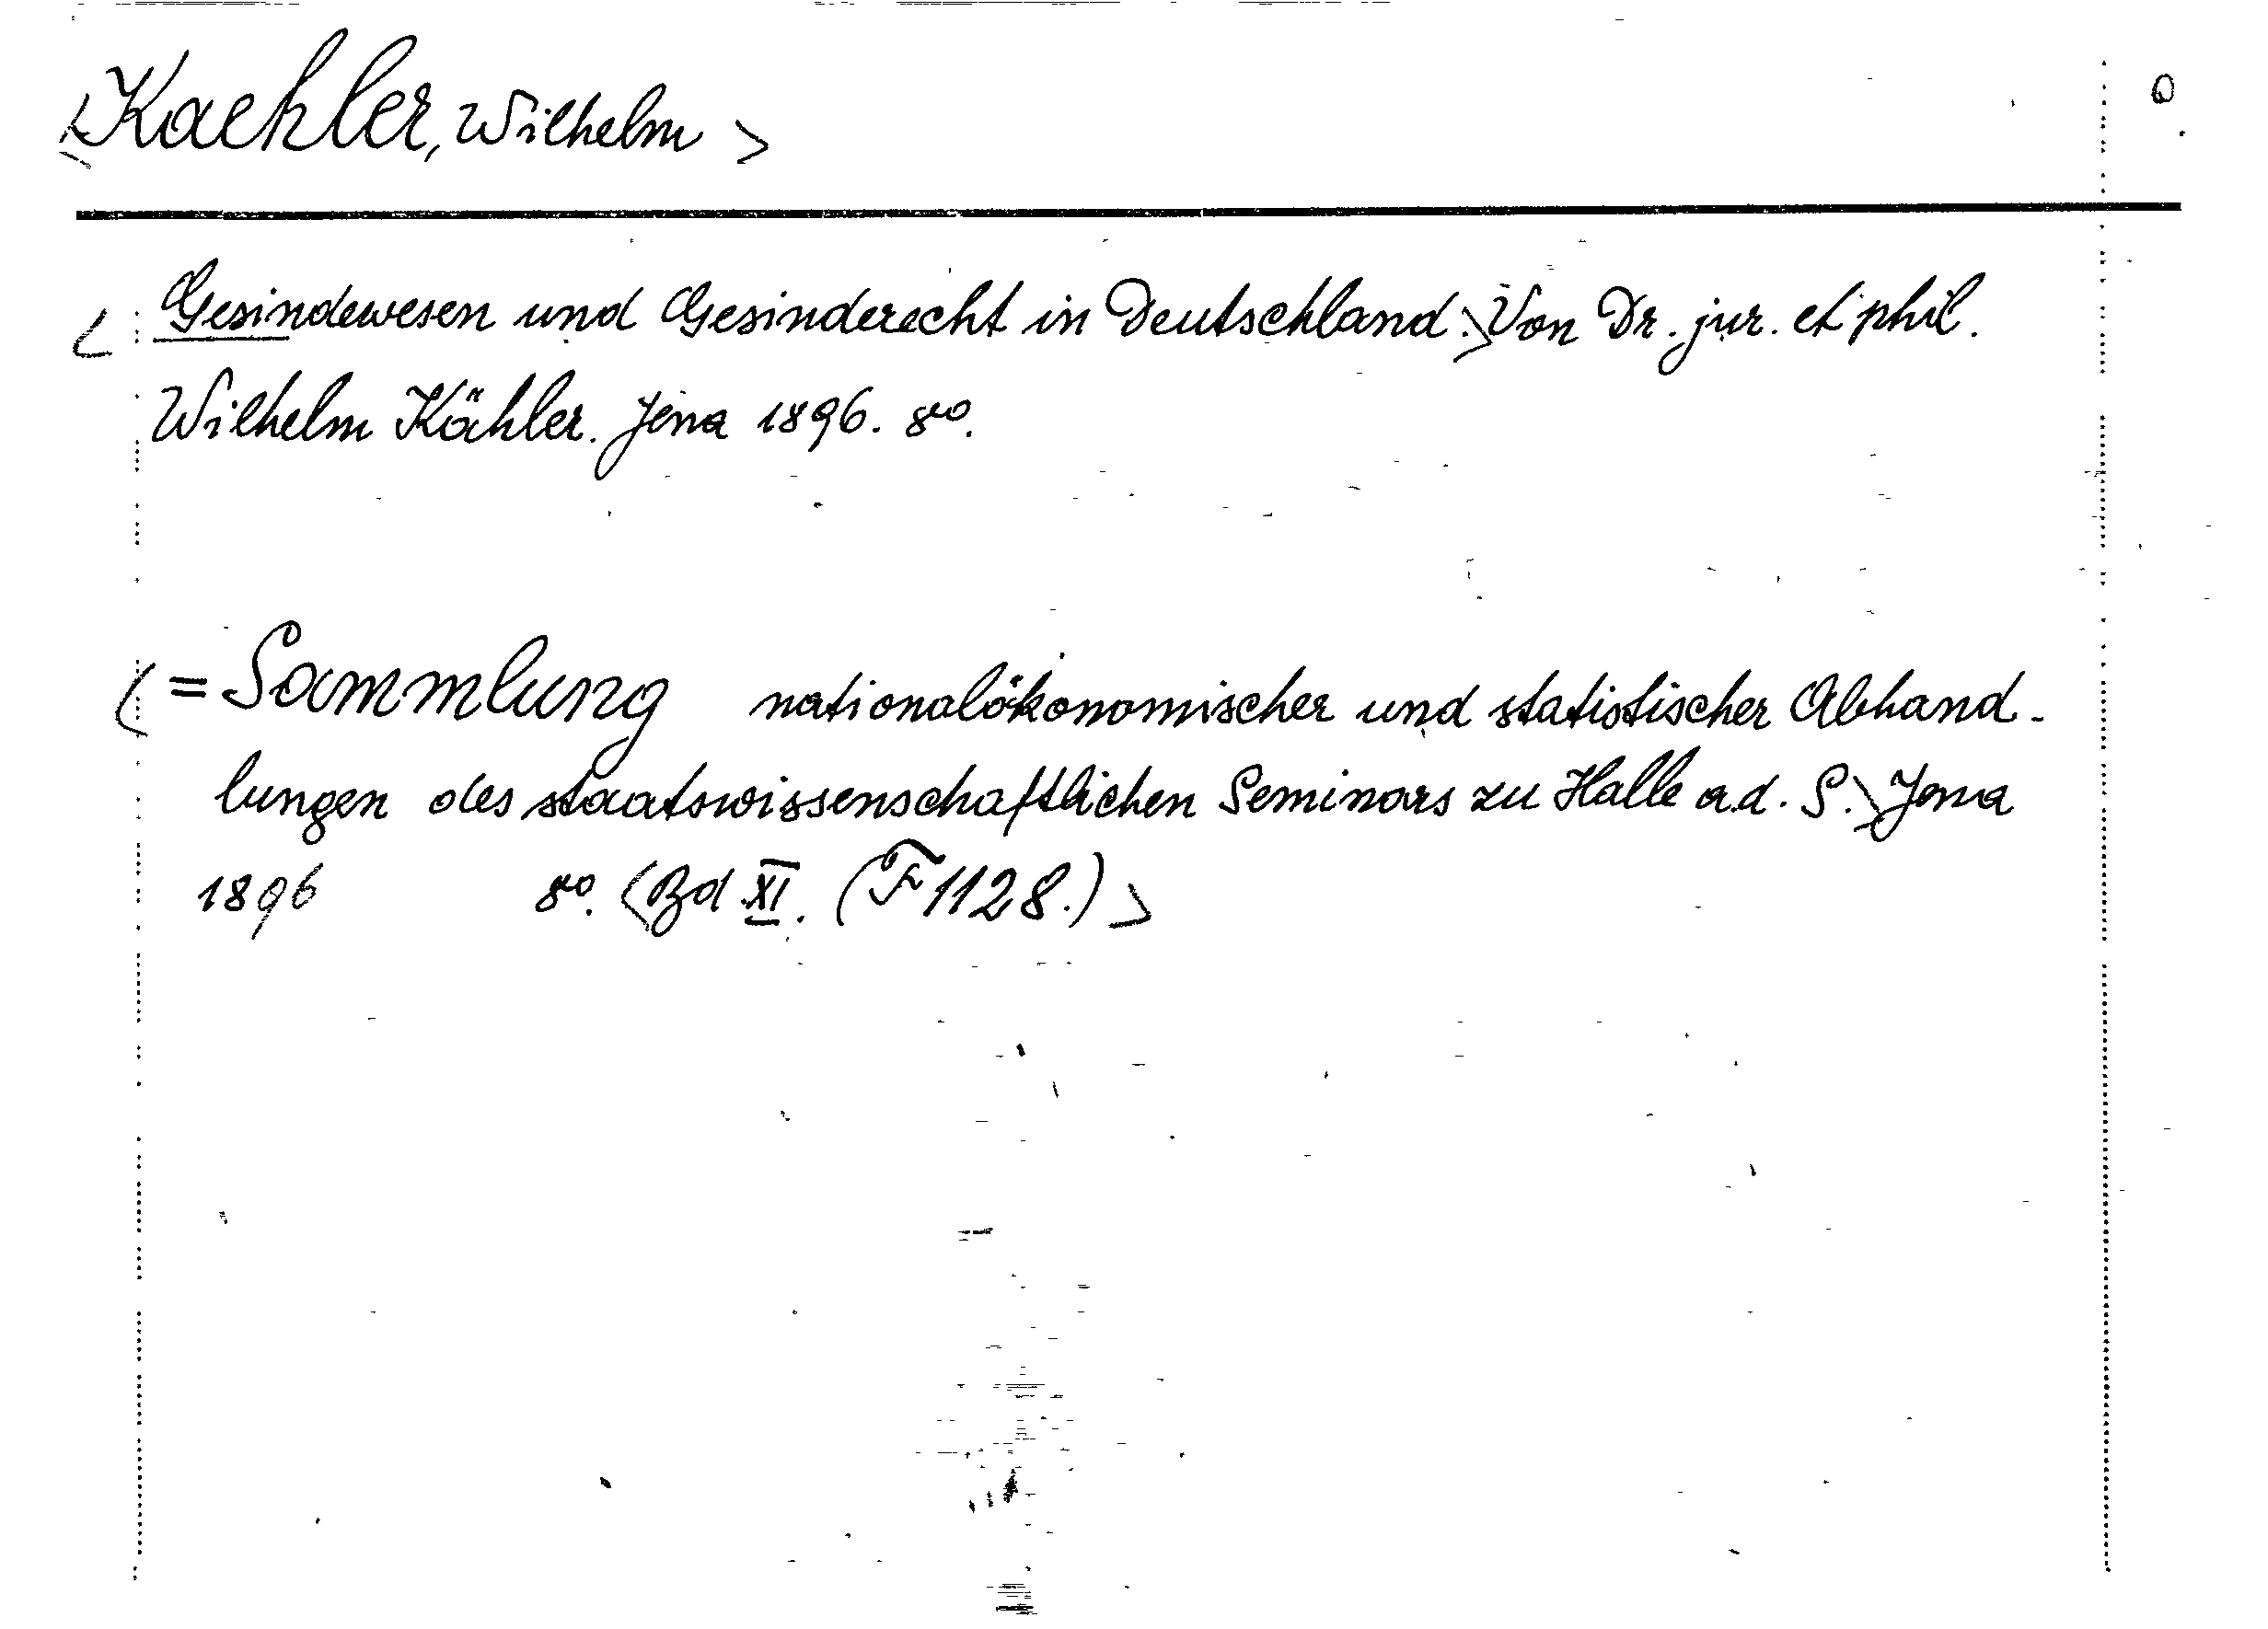 <Kaehler, Wilhelm> 0
<Gesindewesen und Gesinderecht in Deutschland.> Von Dr. jur. et phil.
Wilhelm Kähler. Jena 1896. 8vo.
<= Sammlung nationalökonomischer und statistischer Abhand-
lungen des staatswissenschaftlichen Seminars zu Halle a.d. S.> Jena
1896 8vo. <Bd XI. (F 1128.)>